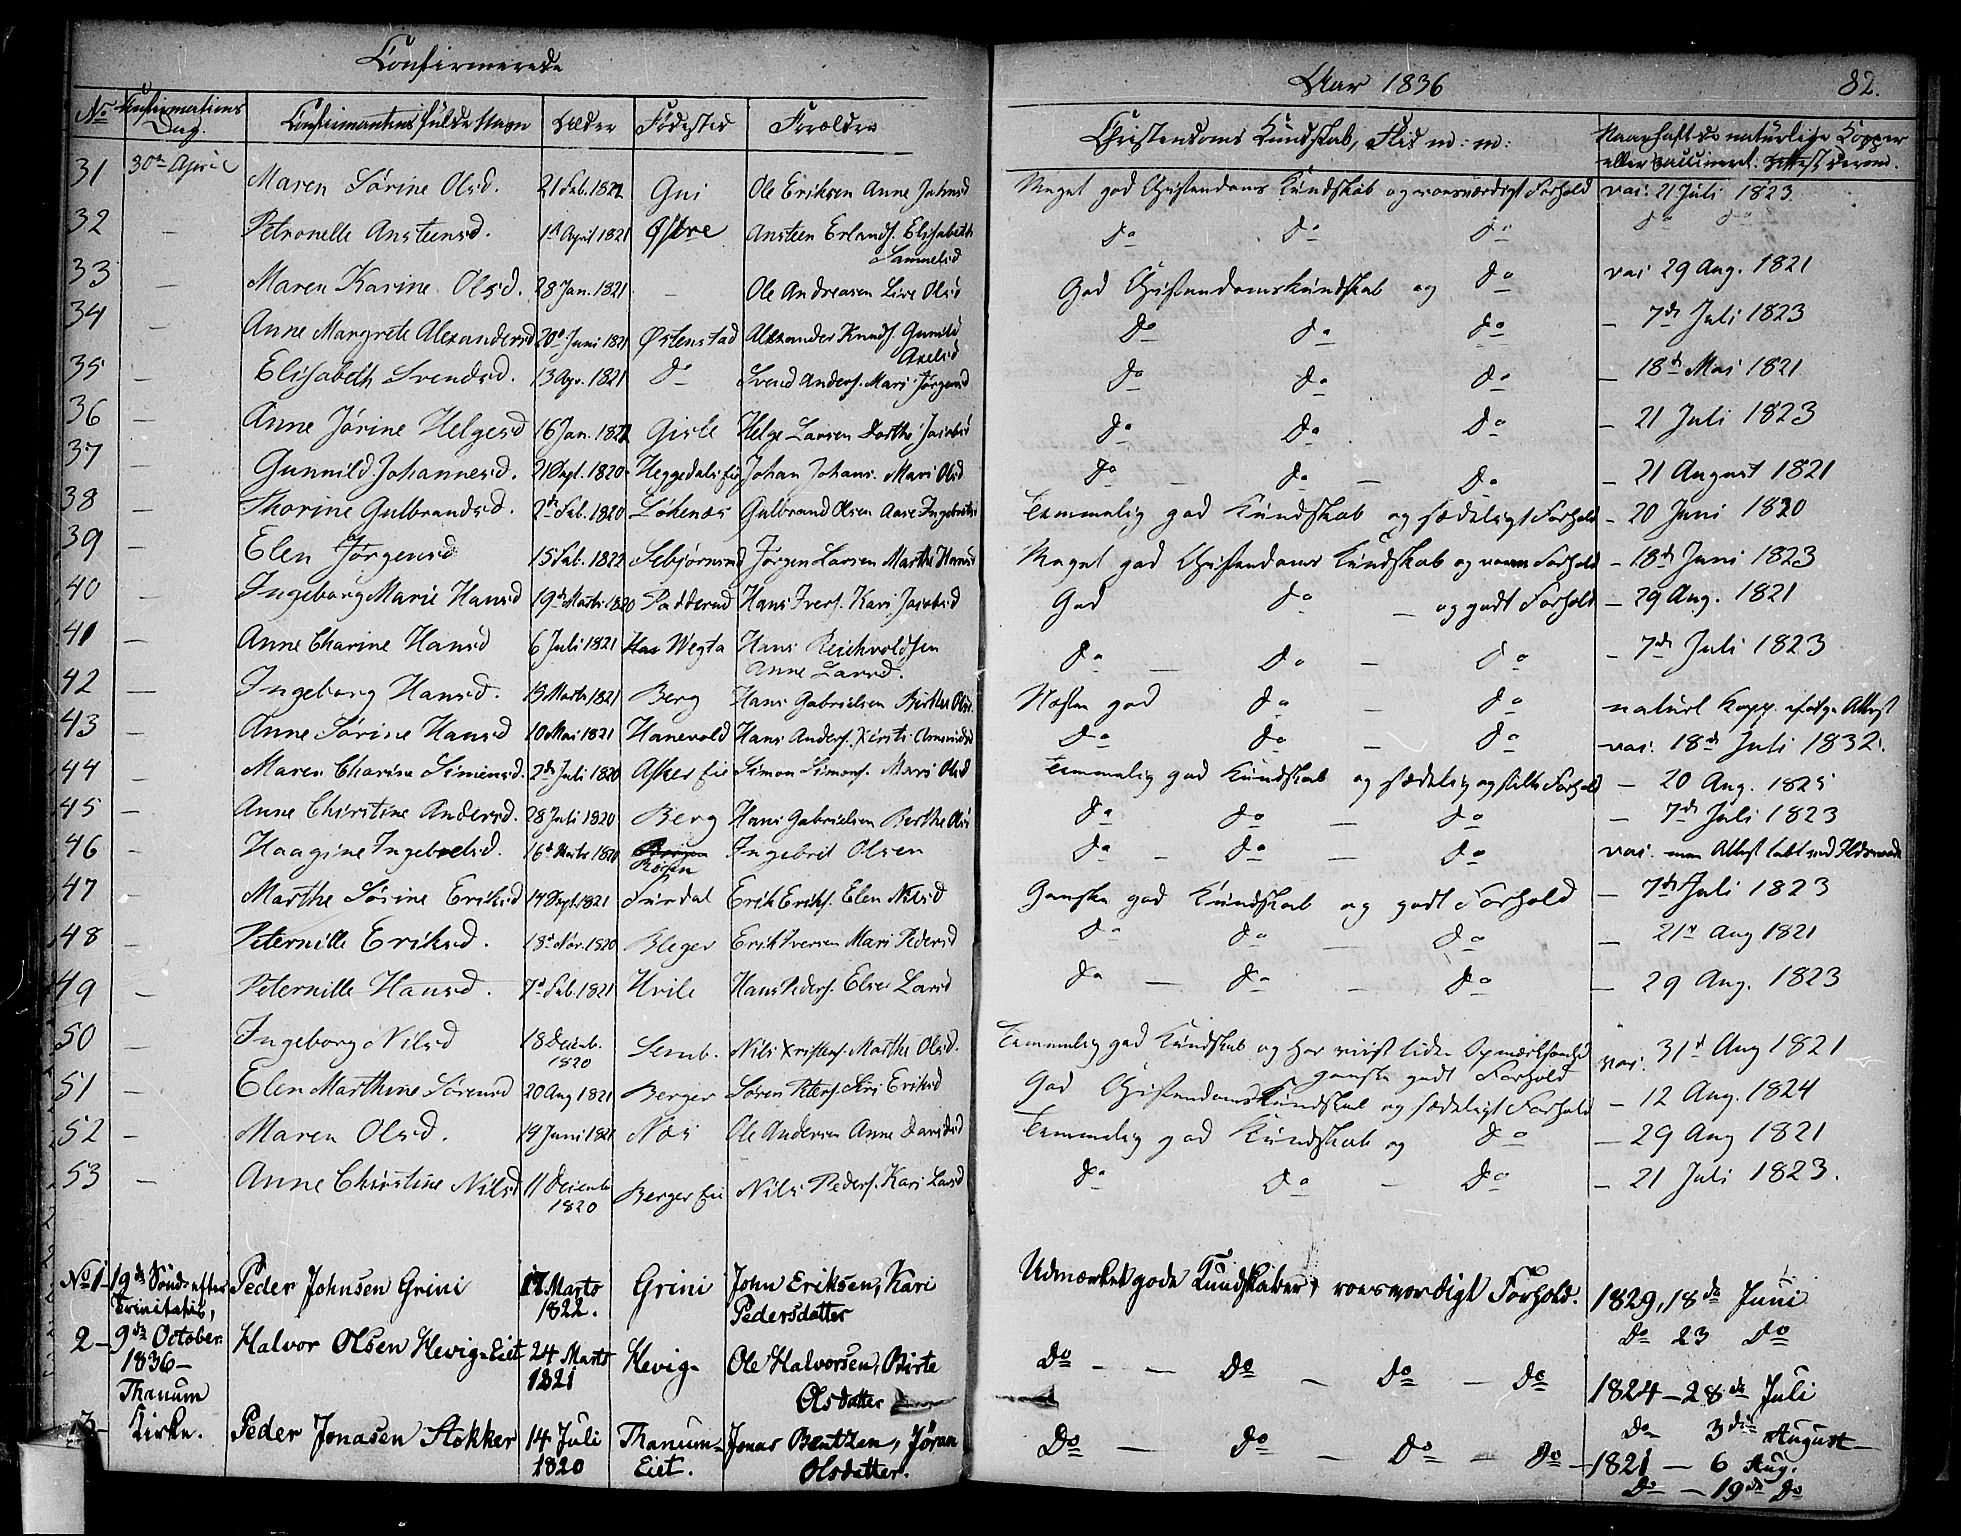 Confirmerede
Aar 1836 82.
No Confirmations Dag. Confirmantens fulde Navn Alder Fødested Forældre Christendoms Kundskab, Flid m: m: Naar hafte de naturlige Kopper
eller vaccineret. Attest derom.
31 30te April Maren Sørine Olsd. 21 Feb. 1822 Gui Ole Eriksen Anne Johnsd Meget god Christendoms Kundskab og roesværdigt Forhold vac: 21 Juli 1823
32 — Petronelle Ansteensd. 1st April 1821 Østre Ansteen Erlands. Elisabeth Samuelsd do do do do do
33 — Maren Karine Olsd. 28 Jan. 1821 — Ole Andreasen Live Olsd God Christendomskundskab og do vac 29 Aug. 1821
34 — Anne Margrete Alexandersd 20de Juni 1821 Østenstad Alexander Knuds. Gunild Axelsd do do do — 7de Juli 1823
35 — Elisabeth Svendsd. 13 Apr. 1821 do Svend Anders. Mari Jørgensd do do do — 18de Mai 1821
36 — Anne Jørine Helgesd 16 Jan. 1822 Gisle Helge Larsen Dorthe Jacobsd do do do — 21 Juli 1823
37 — Gunnild Johannesd. 21 Sept. 1820 Heggedals Eie Johan Johans. Mari Olsd do — do — do — 21 August 1821
38 — Thorine Gulbrandsd. 2de Feb. 1820 Løkenæs Gulbrand Olsen Aase Ingebretsd Temmelig god Kundskab og sædeligt Forhold — 20 Juni 1820
39 — Elen Jørgensd 15 Feb. 1822 Sebjørnsrud Jørgen Larsen Marthe Hansd Meget god Christendoms Kundskab og Forhold — 18de Juni 1823
40 — Ingeborg Marie Hansd 19de Marts 1820 Padderud Hans Ivers. Kari Jacobsd God do — og godt Forhold — 29 Aug. 1821
41 — Anne Charine Hansd 6 Juli 1821 Wegta Hans Reichvoldsen Anne Larsd. do — do — do — 7de Juli 1823
42 — Ingeborg Hansd. 13 Marts 1821 Berg Hans Gabrielsen Birthe Olsd. Næsten god do — do naturl Kopp. ifølge Attest
43 — Anne Sørine Hansd 10 Mai 1821 Hanevold Hans Anders. Kirsti Amundsd do do — do vac: 18de Juli 1832.
44 — Maren Charine Simensd. 2de Juli 1820 Asker Eie Simon Simons. Mari Olsd Temmelig god Kundskab og sædelig og stille Forhold — 20 Aug. 1825
45 — Anne Christine Andersd. 28 Juli 1820 Berg Hans Gabrielsen Berthe Olsd do do — do — 7de Juli 1823
46 — Haagine Ingebretsd. 16de Marts 1820 Røken Ingebret Olsen do — do — do vac. men Attest tabt ved Ildsvaade
47 — Marthe Sørine Eriksd 14 Sept. 1821 Surdal Erik Eriks. Elen Nilsd Ganske god Kundskab og godt Forhold — 7de Juli 1823
48 — Peternille Eriksd. 18de Nov. 1820 Bleger Erik Iversen Mari Pedersd do do — do — 21de Aug 1821
49 — Peternille Hansd. 7de Feb. 1821 Hvile Hans Peders. Else Larsd do — do — do — 29 Aug. 1823
50 — Ingeborg Nilsd 18 Decemb. 1820 Semb. Nils Kristens. Marthe Olsd. Temmelig god Kundskab og har viist liden Opmærksomhed ganske godt Forhold vac. 31te Aug 1821
51 — Elen Marthine Sørensd 20 Aug 1821 Berger Søren Peters. Siri Eriksd God Christendomskundskab og sædeligt Forhold — 12 Aug. 1824
52 — Maren Olsd. 19 Juni 1821 Næs Ole Andersen Anne Davidsd Temmelig god Kundskab og do — 29 Aug 1821
53 — Anne Christine Nilsd 11 Decemb 1820 Berger Eie Nils Peders. Kari Larsd do do — do — 21 Juli 1823.
No 1 – 19de Sønd: efter Peder Johnsen Grini 17 Marts 1822. Grini John Eriksen, Kari Pedersdatter Udmærket gode Kundskaber, roesværdigt Forhold. 1829, 18de Juni
Trinitatis, Do 23 Do
2 – 9de October 1836 – Halvor Olsen Hevig-Eiet 24 Marts 1821 Hevig- Ole Halvorsen, Birte Olsdatter Do – – Do – Do – Do 1824 – 28de Juli
Thanum Do 3die August
3 – Kirke. Peder Jonasen Stokker 14 Juli 1820 Thanum-Eiet. Jonas Bentzen, Jøran Olsdatter. Do — Do — Do – Do – 1821 – 6 Aug.
Do – 19de Do